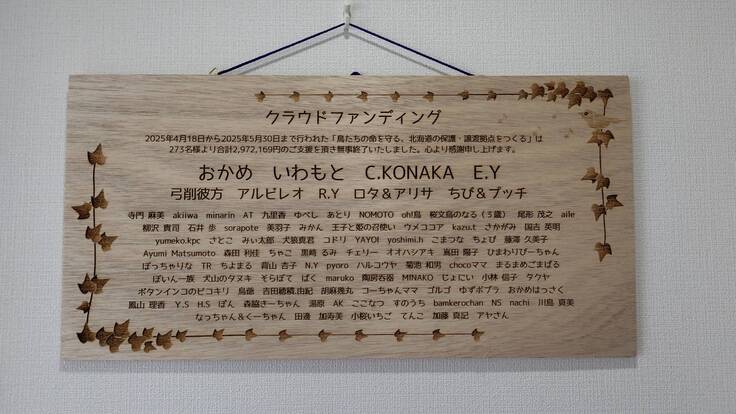 クラウドファンディング
2025年4月18日から2025年5月30日まで行われた「鳥たちの命を守る、北海道の保護・譲渡拠点をつくる」は
273名様より合計2,972,169円のご支援を頂き無事終了いたしました。心より感謝申し上げます。
おかめ いわもと C.KONAKA E.Y
弓削彼方 アルビレオ R.Y ロタ＆アリサ ちび＆プッチ
寺門 麻美 akiiwa minarin AT 九里香 ゆべし あとり NOMOTO oh!鳥 桜文鳥のなる（５歳） 尾形 茂之 aile
柳沢 貴司 石井 歩 sorapote 美羽子 みかん 王子と姫の召使い ウメココア kazu.t さかがみ 国吉 英明
yumeko.kpc さとこ みぃ太郎 犬猿真君 コドリ YAYOI yoshimi.h こまつな ちょび 藤澤 久美子
Ayumi Matsumoto 森田 利佳 ちゃこ 黒崎 るみ チェリー オオハシアキ 嶌田 陽子 ひまわりぴーちゃん
ぽっちゃりな TR ちよまる 背山 杏子 N.Y pyoro ハルコウヤ 菊池 和男 chocoママ まるまめごまぱる
ぽいん一族 犬山のタヌキ そらぽて ぱく maruko 陶房呑器 MINAKO じょにい 小林 信子 タクヤ
ボタンインコのピコキリ 鳥爺 吉田穂積,由紀 胡麻幾丸 コーちゃんママ ゴルゴ ゆずポプラ おかめはっさく
鳳山 理香 Y.S H.S ぽん 森脇きーちゃん 湯原 AK ここなつ すのうち bamkerochan NS nachi 川島 真美
なっちゃん＆くーちゃん 田邊 加寿美 小桜いちご てんこ 加藤 真記 アヤさん